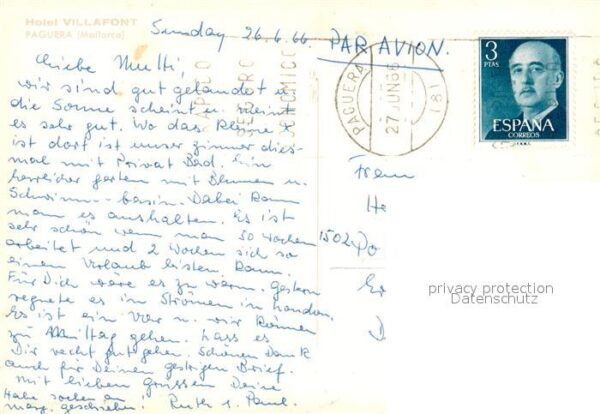 Hotel VILLAFONT
PAGUERA (Mallorca)
Sunday 26.6.66
PAR AVION.
Liebe Mutti,
wir sind gut gelandet u.
die Sonne scheint u. meint
es sehr gut. Wo das kleine X
ist dort ist unser Zimmer dies-
mal mit Privat Bad. Ein
herrlicher garten mit Blumen u.
Schwimm-basin. Dabei kann
man es aushalten. Es ist
sehr schön wenn man 50 Wochen
arbeitet und 2 Wochen sich so
einen Urlaub leisten kann.
Für Dich wäre es zu warm. Gestern
regnete es in Strömen in London.
Es ist ein Uhr u. wir können
zu Mittag gehen. Lass es
Dir recht gut gehen. Schönen Dank
auch für Deinen gestrigen Brief.
Mit lieben Grüssen Deine
Habe soeben an
Marg. geschrieben! Ruth u. Paul.
PAGUERA
27 JUN 66
(181)
3
PTAS
ESPAÑA
CORREOS
Frau
He
1502
Do
Er
D
privacy protection
Datenschutz